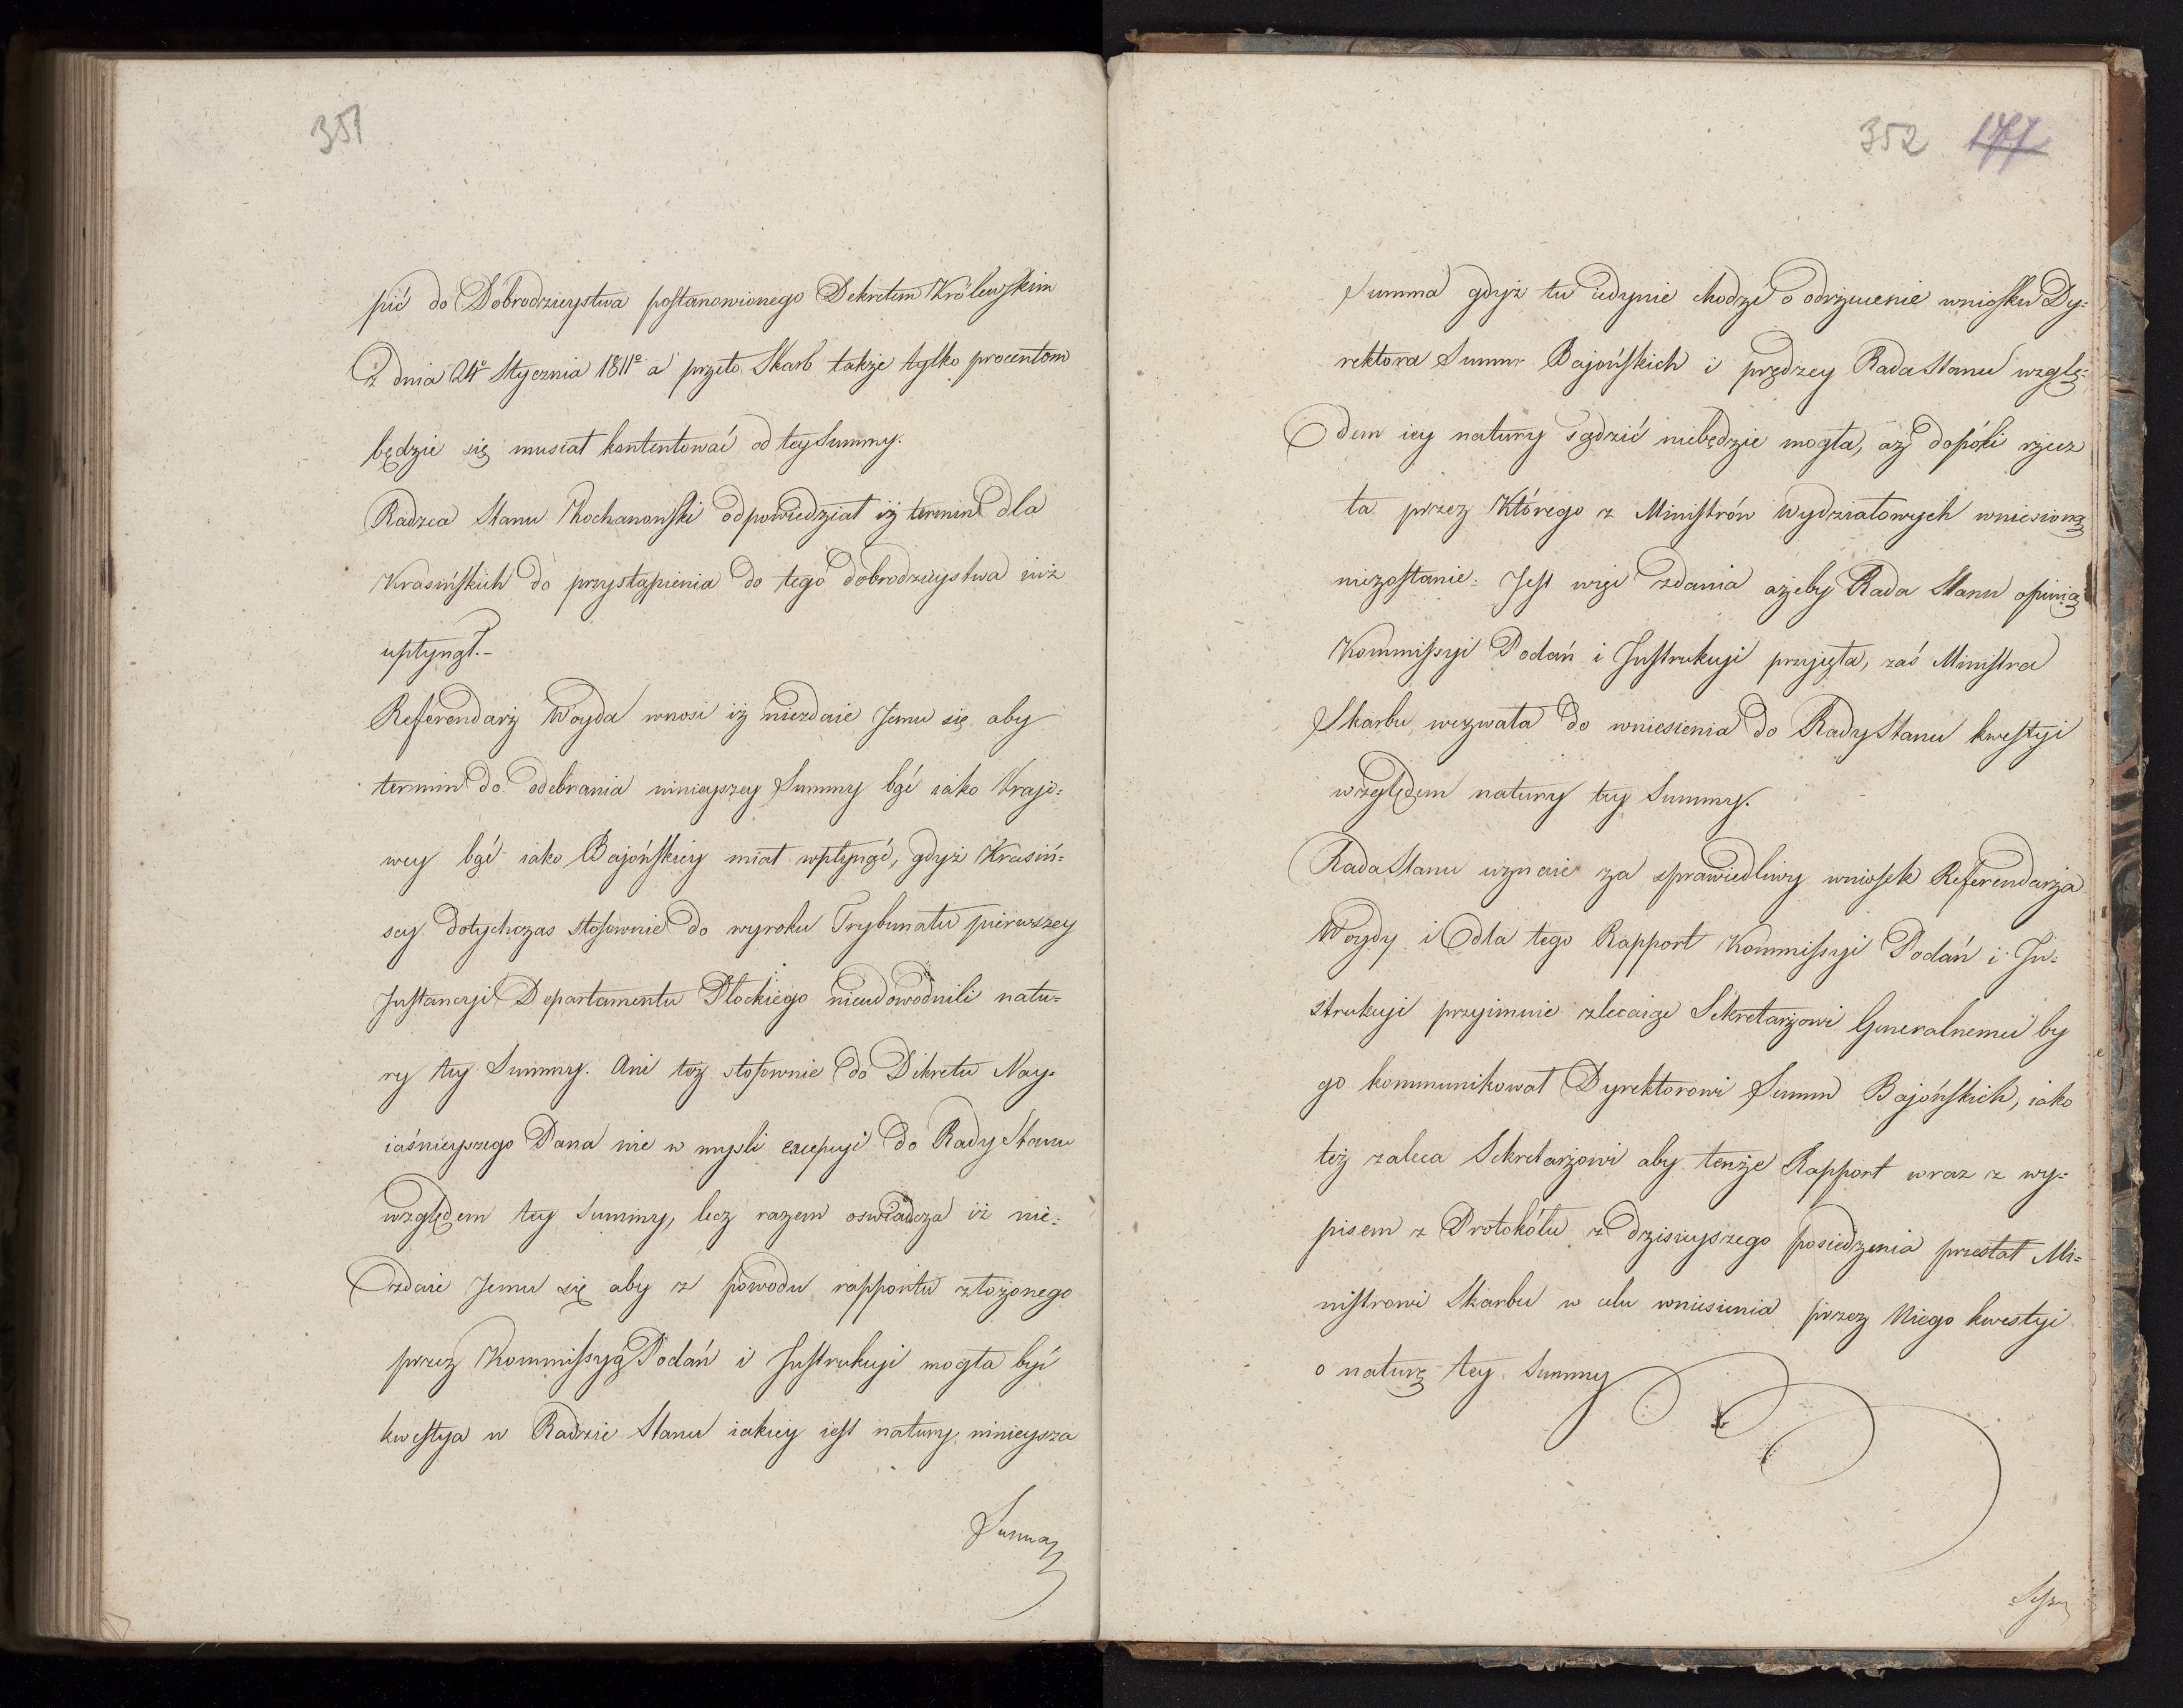 351
pić do Dobrodzieystwa postanowionego Dekretem Królewskim
z dnia 24º Stycznia 1811º a przeto Skarb także tylko procentom
będzie się musiał kontentować od tey Summy.
Radzca Stanu Kochanowski odpowiedział iż termin dla
Krasińskich do przystąpienia do tego dobrodzieystwa iuż
upłynął.-
Referendarz Woyda wnosi iż niezdaie Jemu się aby
termin do odebrania ninieyszey Summy bąć iako Krajo=
wey bąć iako Bajońskiey miał wpłynąć, gdyż Krasiń=
scy dotychczas stosownie do wyroku Trybunału pierwszey
Instancyi Departamentu Płockiego nieudowodnili natu=
ry tey Summy. Ani też stosownie do Dekretu Nay=
iaśnieyszego Pana nie w myśli excepcyi do Rady Stanu
względem tey Summy, lecz razem oswiadcza iż nie=
zdaie Jemu się aby z powodu rapportu złożonego
przez Kommissyą Podań i Instrukcyi mogła być
kwestya w Radzie Stanu iakiey iest natury ninieysza
Summa
352 177
Summa gdyż tu iedynie chodzi o odrzucenie wniosku Dy=
rektora Summ Bajońskich i prędzey Rada Stanu wzglę=
dem iey natury sądzić niebędzie mogła, aż dopóki rzecz
ta przez Którego z Ministrów Wydziałowych wniesioną
niezostanie. Jest więc zdania ażeby Rada Stanu opinią
Kommissyi Podań i Instrukcyi przyięła, zaś Ministra
Skarbu wezwała do wniesienia do Rady Stanu kwestyi
względem natury tey Summy.
Rada Stanu uznaie za sprawiedliwy wniosek Referendarza
Woydy i dla tego Rapport Kommissyi Podań i In=
strukcyi przyimuie zlecaiąc Sekretarzowi Generalnemu by
go kommunikował Dyrektorowi Summ Bajońskich, iako
też zaleca Sekretarzowi aby tenże Rapport wraz z wy=
pisem z Protokółu z dzisieyszego posiedzenia przesłał Mi=
nistrowi Skarbu w celu wniesienia przez Niego kwestyi
o naturę tey Summy